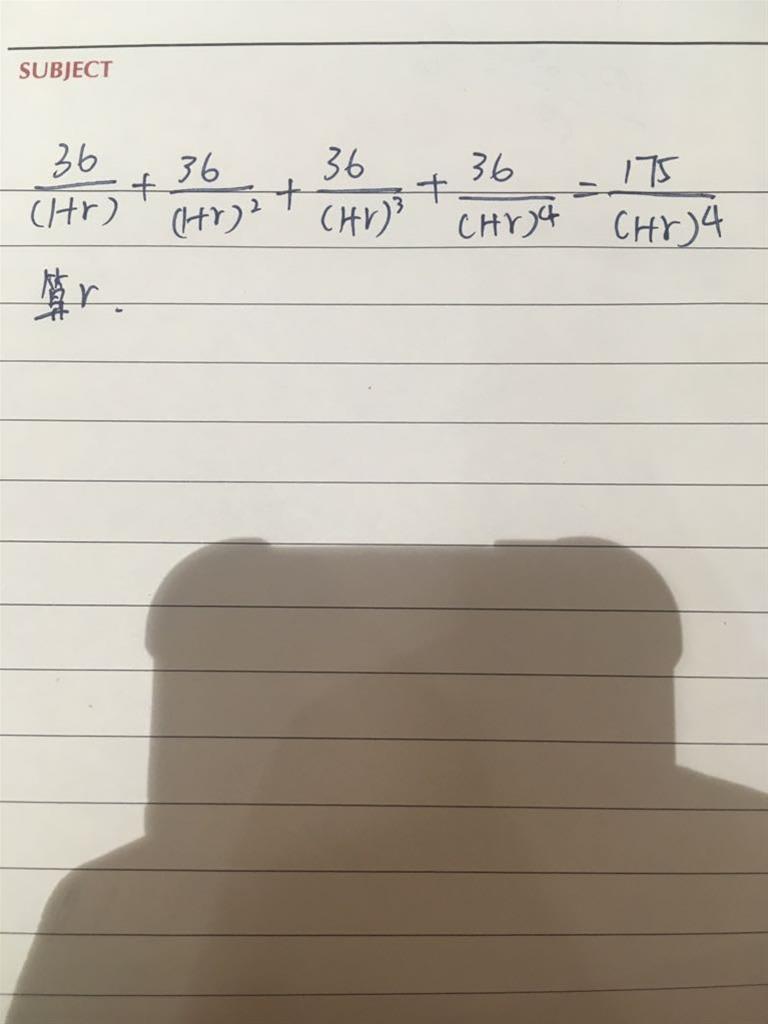 SUBJECT
36/(1+r) + 36/(1+r)² + 36/(1+r)³ + 36/(1+r)⁴ = 175/(1+r)⁴
算r.